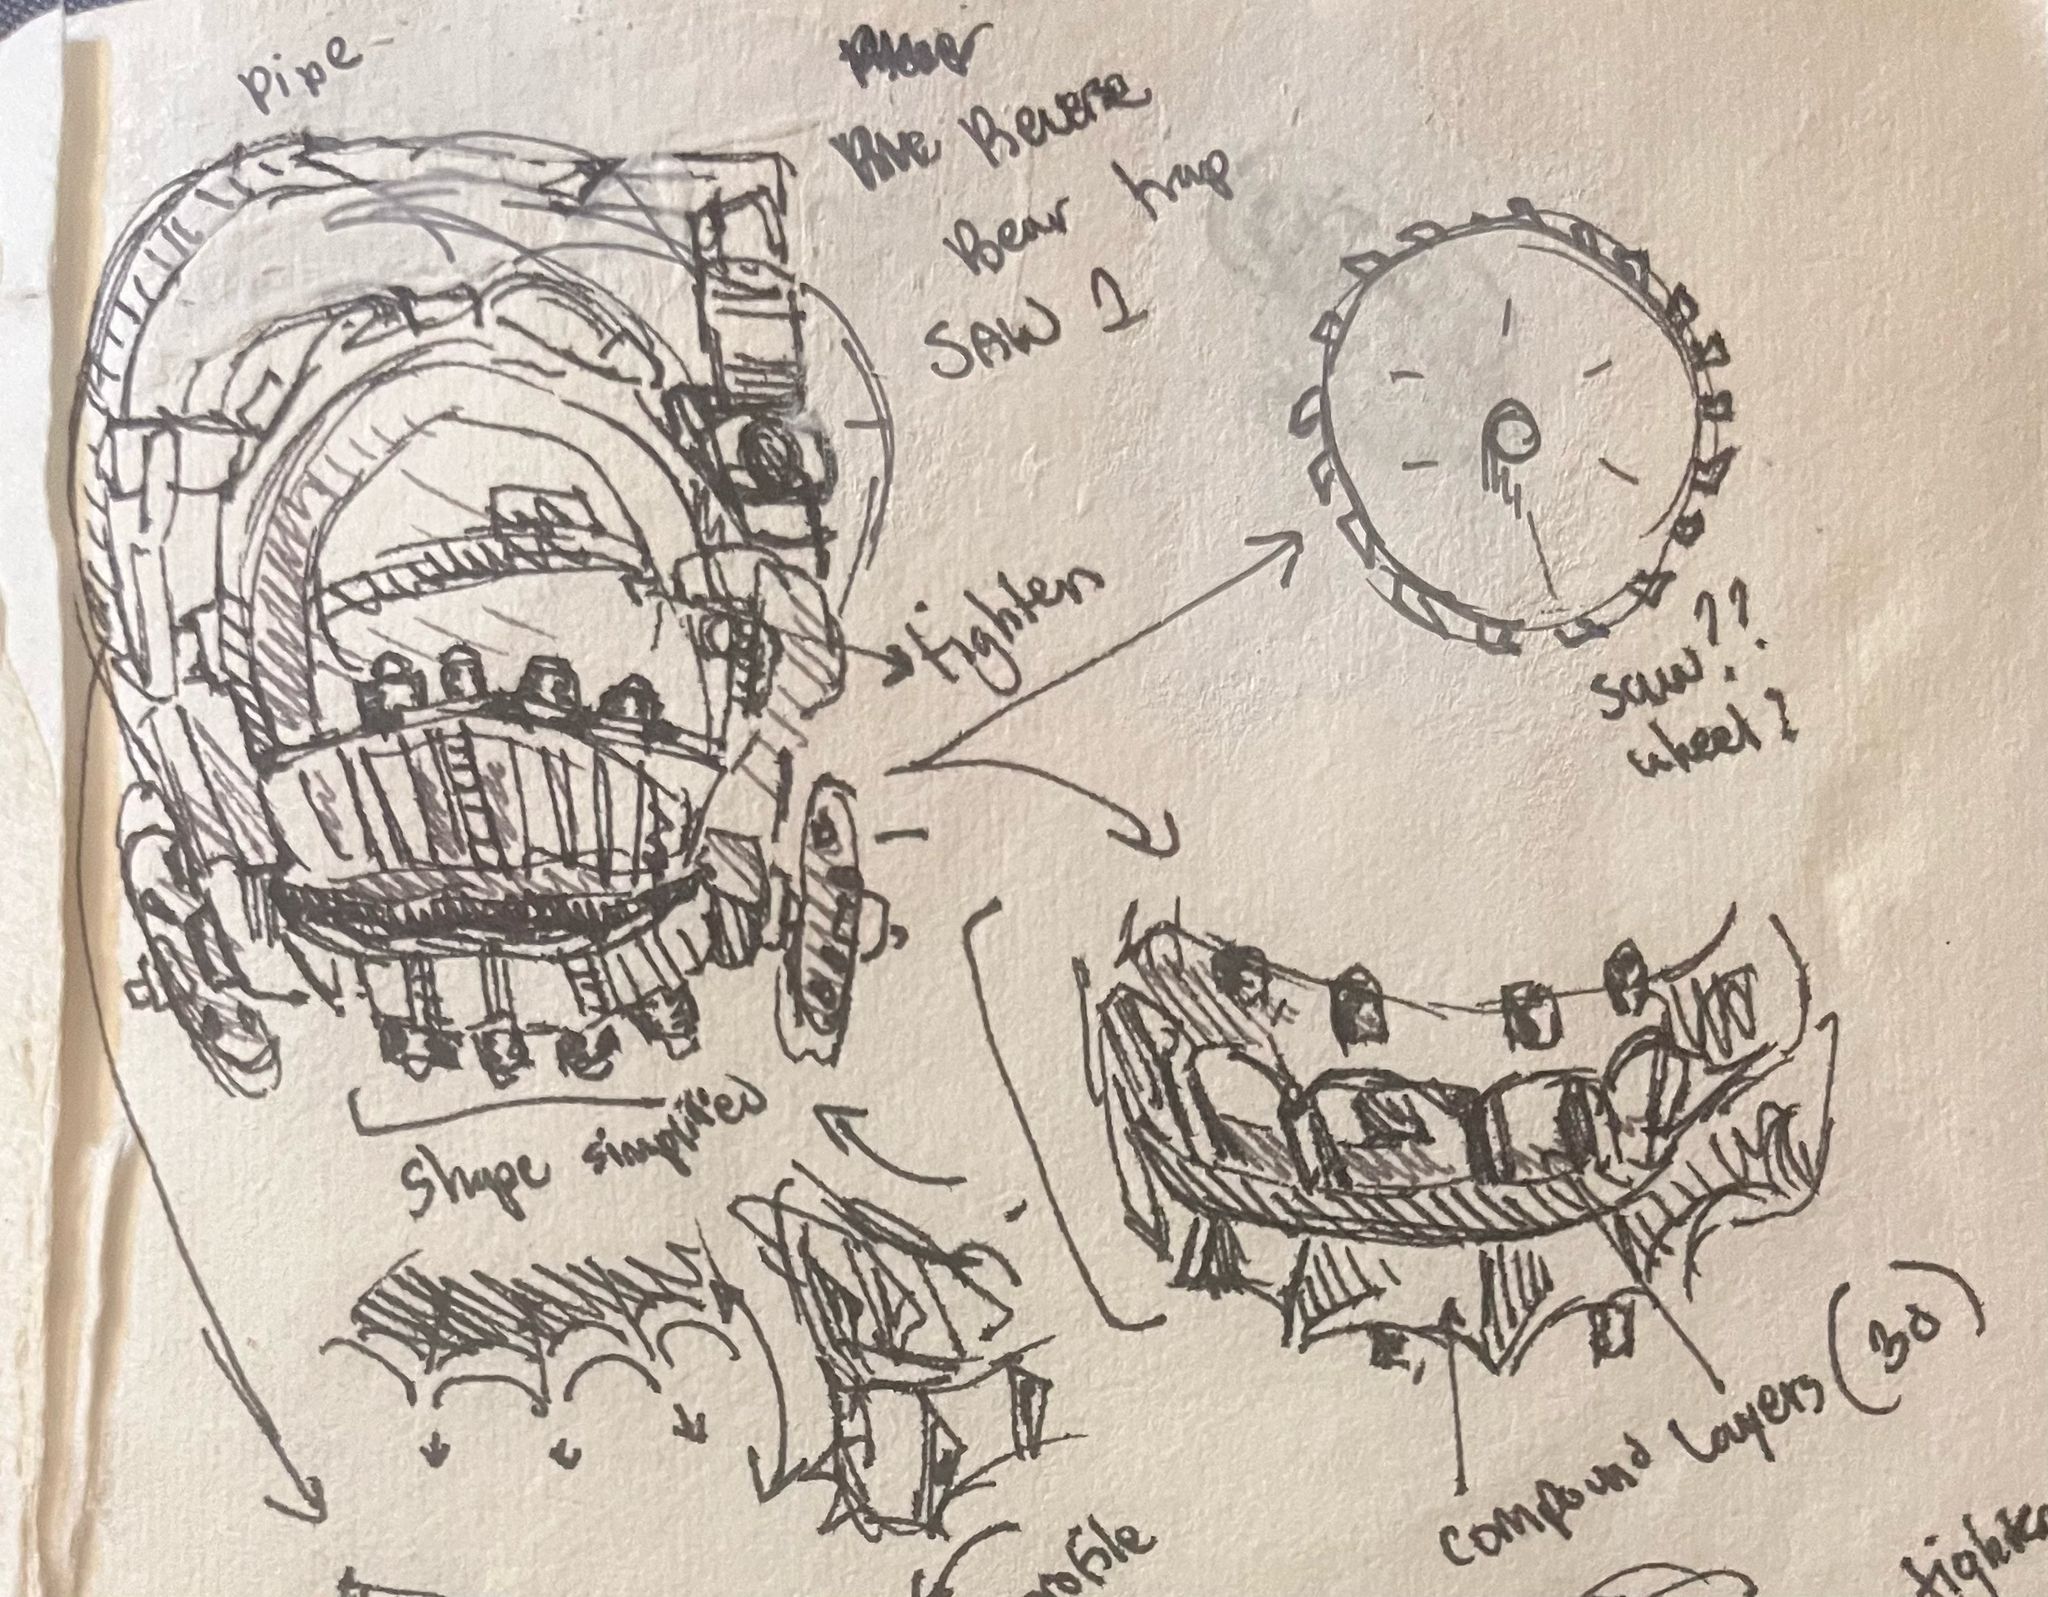 Pipe
Reverse
Bear trap
SAW 1
tighten
saw??
wheel?
shape simplified
compound layers (30)